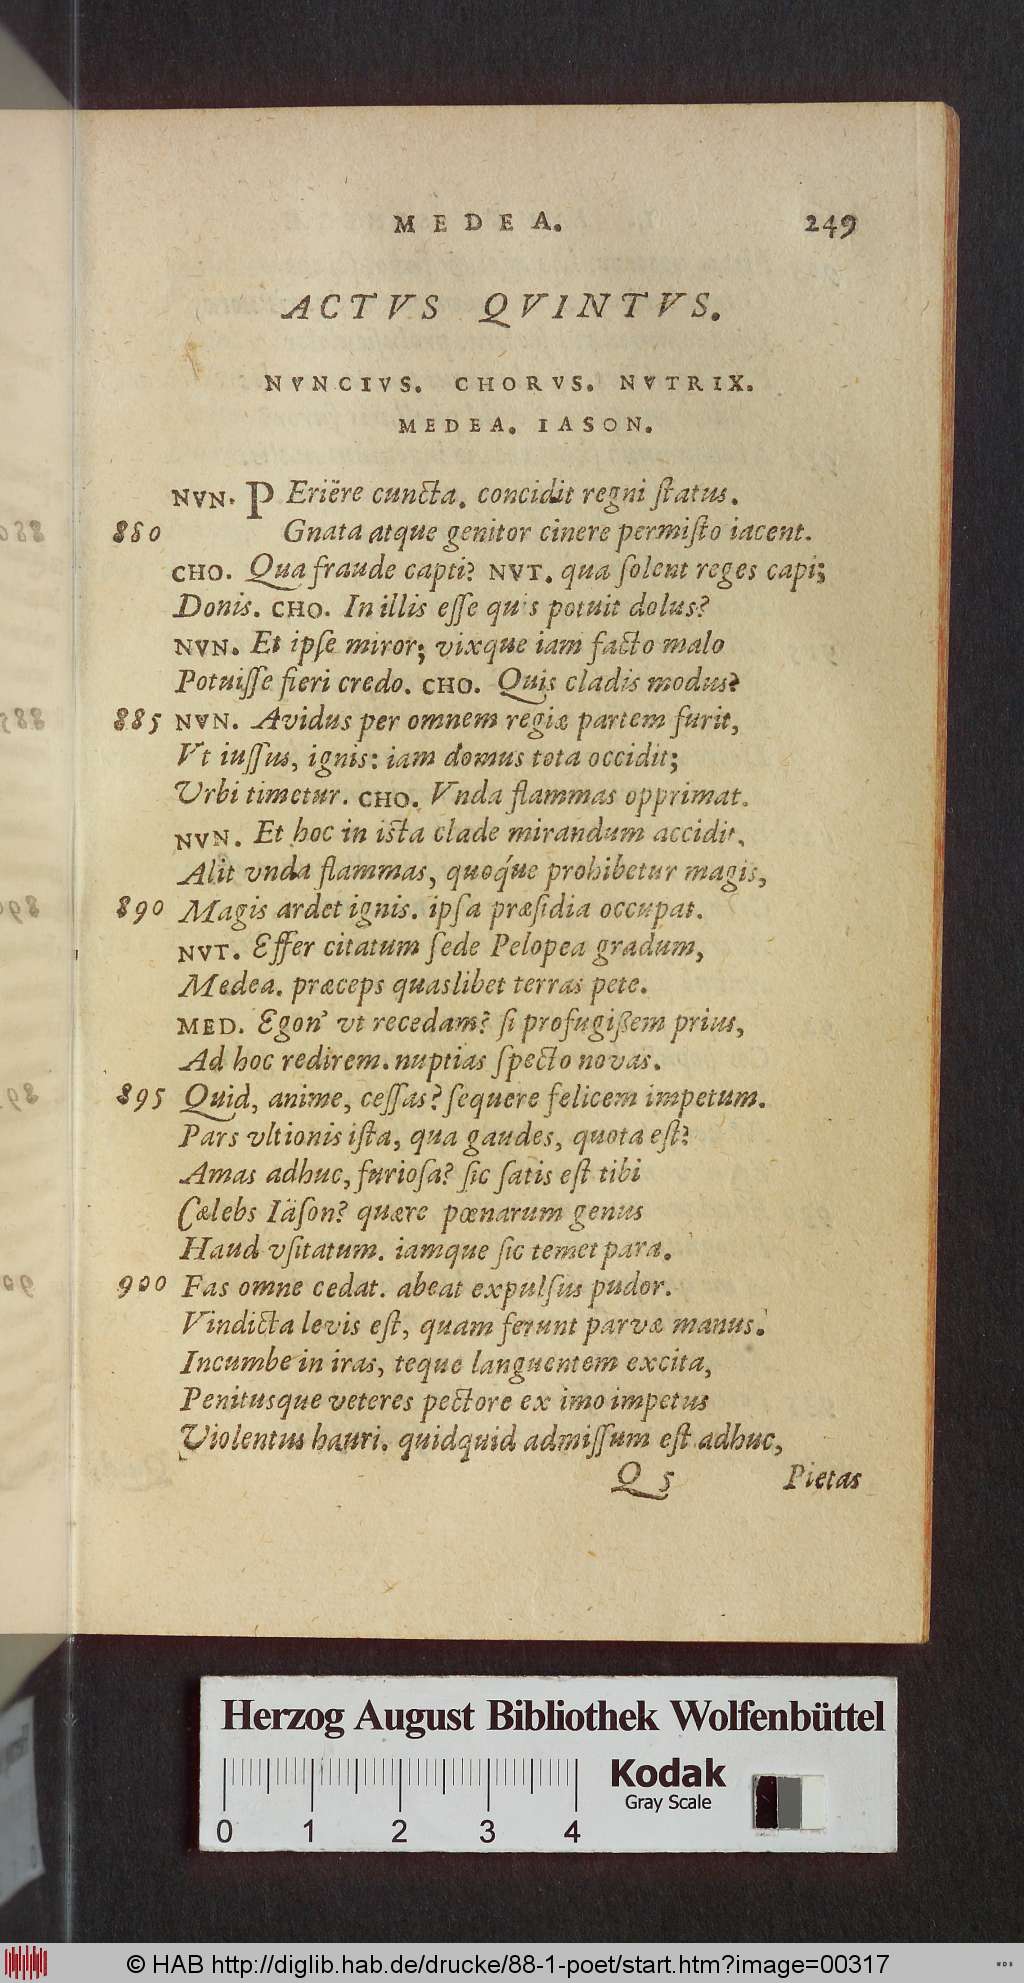 MEDEA. 249
ACTVS QVINTVS.
NVNCIVS. CHORVS. NVTRIX.
MEDEA. IASON.
NVN. PEriëre cuncta. concidit regni ſtatus.
880 Gnata atque genitor cinere permiſto iacent.
CHO. Qua fraude capti? NVT. qua ſolent reges capi;
Donis. CHO. In illis eſſe quis potuit dolus?
NVN. Et ipſe miror; vixque iam facto malo
Potuiſſe fieri credo. CHO. Quis cladis modus?
885 NVN. Avidus per omnem regiæ partem furit,
Vt iuſſus, ignis: iam domus tota occidit;
Vrbi timetur. CHO. Vnda flammas opprimat.
NVN. Et hoc in iſta clade mirandum accidit,
Alit vnda flammas, quoq́ue prohibetur magis,
890 Magis ardet ignis. ipſa præſidia occupat.
NVT. Effer citatum ſede Pelopea gradum,
Medea. præceps quaslibet terras pete.
MED. Egon' vt recedam? ſi profugißem prius,
Ad hoc redirem. nuptias ſpecto novas.
895 Quid, anime, ceſſas? ſequere felicem impetum.
Pars vltionis iſta, qua gaudes, quota eſt?
Amas adhuc, furioſa? ſic ſatis eſt tibi
Cælebs Iäſon? quære pœnarum genus
Haud vſitatum. iamque ſic temet para.
900 Fas omne cedat. abeat expulſus pudor.
Vindicta levis eſt, quam ferunt parvæ manus.
Incumbe in iras, teque languentem excita,
Penitusque veteres pectore ex imo impetus
Violentus hauri. quidquid admiſſum eſt adhuc,
Q 5 Pietas
Herzog August Bibliothek Wolfenbüttel
Kodak
Gray Scale
0 1 2 3 4
© HAB http://diglib.hab.de/drucke/88-1-poet/start.htm?image=00317